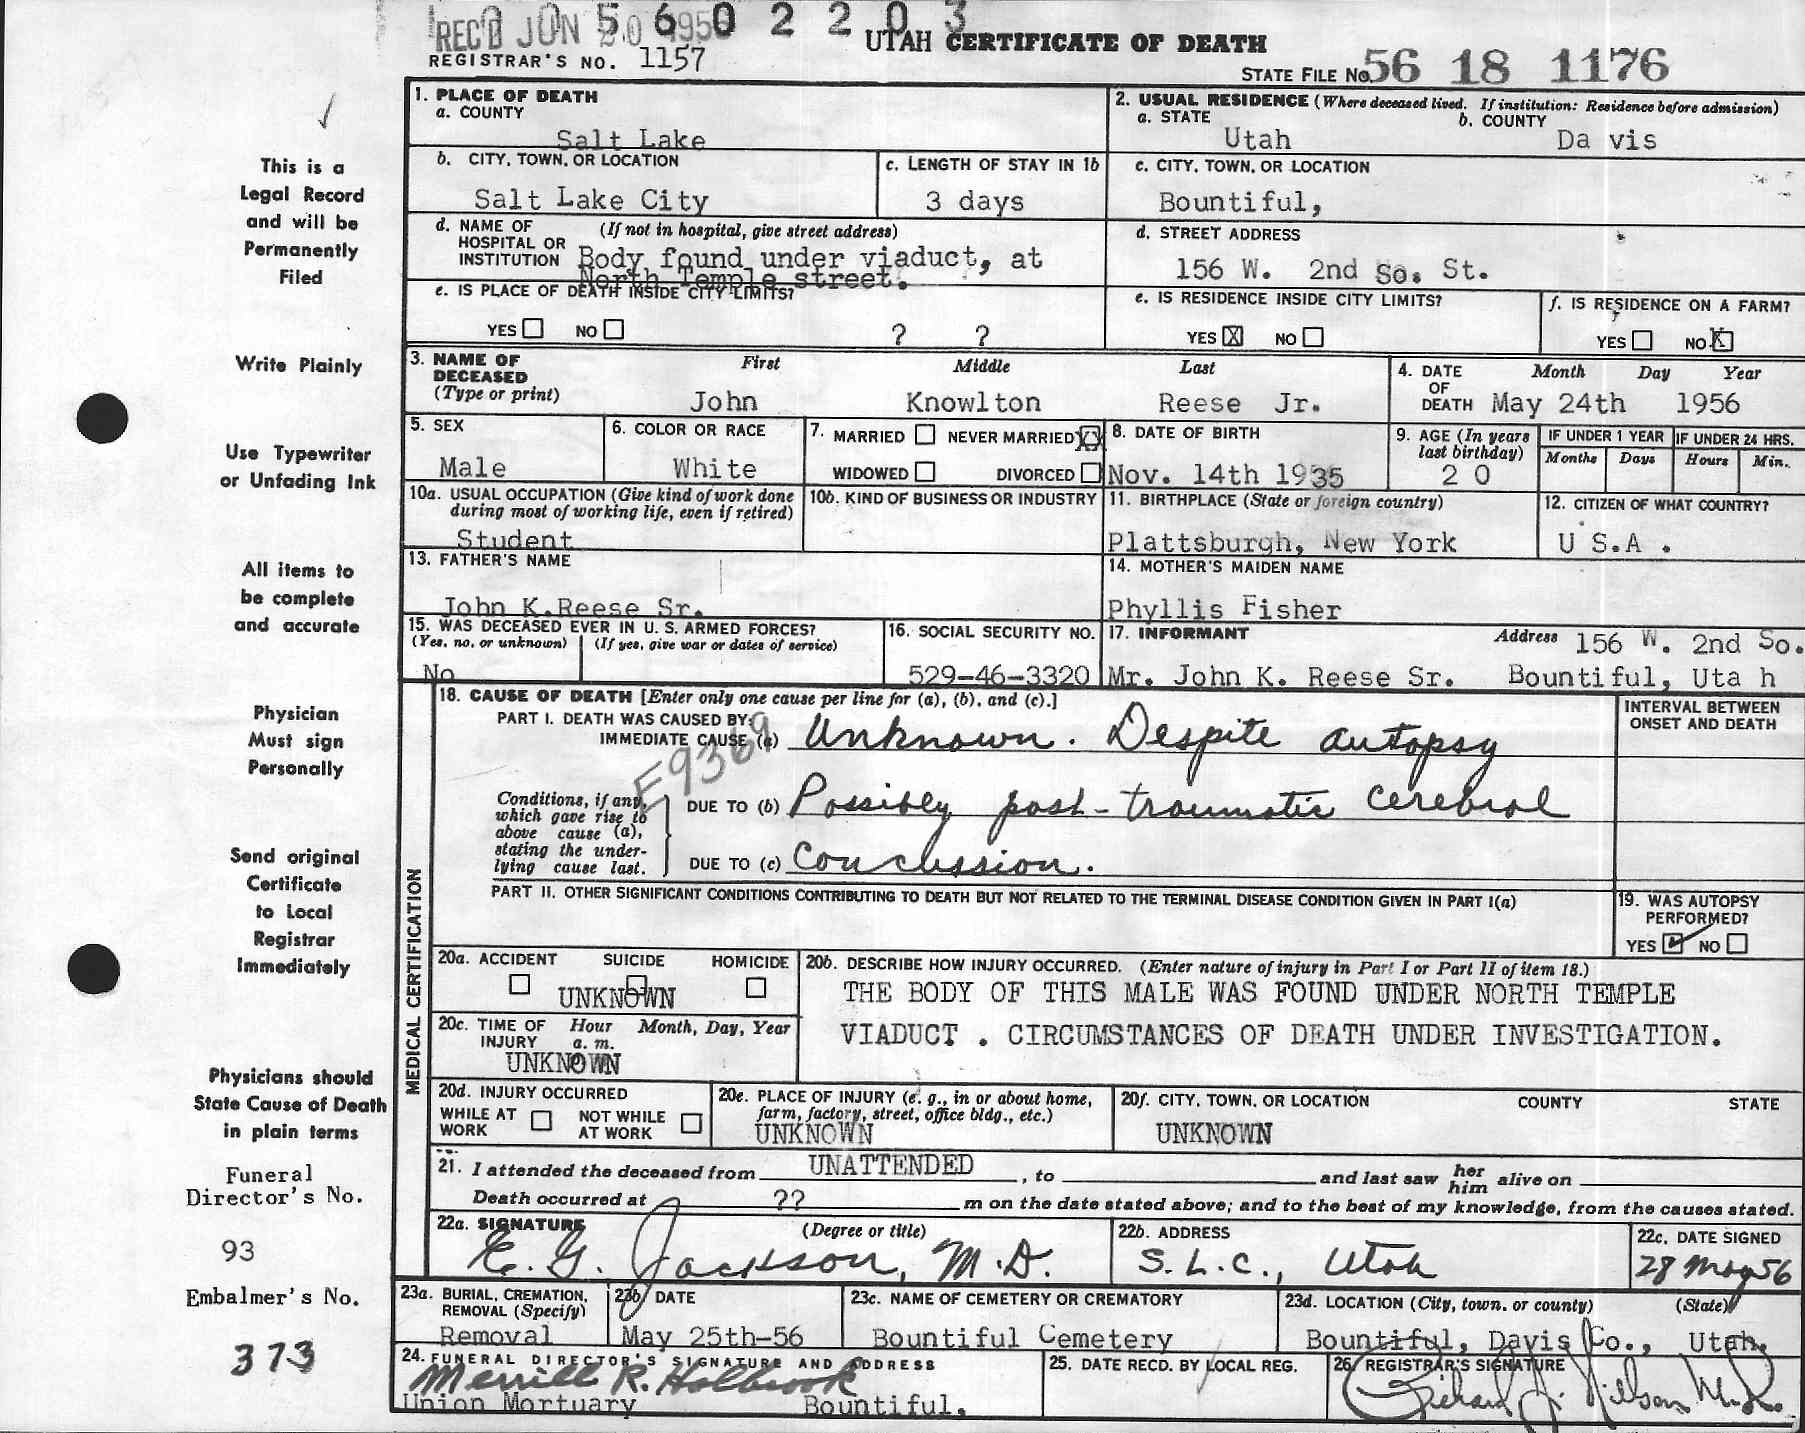 REC'D JUN 20 1956 5 6 0 2 2 0 3
UTAH CERTIFICATE OF DEATH
REGISTRAR'S NO. 1157
STATE FILE No. 56 18 1176
This is a
Legal Record
and will be
Permanently
Filed
Write Plainly
Use Typewriter
or Unfading Ink
All items to
be complete
and accurate
Physician
Must sign
Personally
Send original
Certificate
to Local
Registrar
Immediately
Physicians should
State Cause of Death
in plain terms
Funeral
Director's No.
93
Embalmer's No.
373
1. PLACE OF DEATH
a. COUNTY
Salt Lake
2. USUAL RESIDENCE (Where deceased lived. If institution: Residence before admission)
a. STATE b. COUNTY
Utah Da vis
b. CITY, TOWN, OR LOCATION
Salt Lake City
c. LENGTH OF STAY IN 1b
3 days
c. CITY, TOWN, OR LOCATION
Bountiful,
d. NAME OF HOSPITAL OR INSTITUTION (If not in hospital, give street address)
Body found under viaduct, at
North Temple street.
d. STREET ADDRESS
156 W. 2nd So. St.
e. IS PLACE OF DEATH INSIDE CITY LIMITS?
YES NO ? ?
e. IS RESIDENCE INSIDE CITY LIMITS?
YES X NO
f. IS RESIDENCE ON A FARM?
YES NO X
3. NAME OF DECEASED (Type or print)
First Middle Last
John Knowlton Reese Jr.
4. DATE OF DEATH Month Day Year
May 24th 1956
5. SEX
Male
6. COLOR OR RACE
White
7. MARRIED NEVER MARRIED X
WIDOWED DIVORCED
8. DATE OF BIRTH
Nov. 14th 1935
9. AGE (In years last birthday)
2 0
IF UNDER 1 YEAR
Months Days
IF UNDER 24 HRS.
Hours Min.
10a. USUAL OCCUPATION (Give kind of work done during most of working life, even if retired)
Student
10b. KIND OF BUSINESS OR INDUSTRY
11. BIRTHPLACE (State or foreign country)
Plattsburgh, New York
12. CITIZEN OF WHAT COUNTRY?
U S.A .
13. FATHER'S NAME
John K.Reese Sr.
14. MOTHER'S MAIDEN NAME
Phyllis Fisher
15. WAS DECEASED EVER IN U. S. ARMED FORCES?
(Yes, no, or unknown) (If yes, give war or dates of service)
No
16. SOCIAL SECURITY NO.
529-46-3320
17. INFORMANT Address 156 W. 2nd So.
Mr. John K. Reese Sr. Bountiful, Uta h
MEDICAL CERTIFICATION
18. CAUSE OF DEATH [Enter only one cause per line for (a), (b), and (c).]
PART I. DEATH WAS CAUSED BY:
IMMEDIATE CAUSE (a) Unknown. Despite autopsy
E9369
Conditions, if any, which gave rise to above cause (a), stating the underlying cause last.
DUE TO (b) Possibly post-traumatic cerebral
DUE TO (c) concussion.
INTERVAL BETWEEN ONSET AND DEATH
PART II. OTHER SIGNIFICANT CONDITIONS CONTRIBUTING TO DEATH BUT NOT RELATED TO THE TERMINAL DISEASE CONDITION GIVEN IN PART I(a)
19. WAS AUTOPSY PERFORMED?
YES ✓ NO
20a. ACCIDENT SUICIDE HOMICIDE
UNKNOWN
20b. DESCRIBE HOW INJURY OCCURRED. (Enter nature of injury in Part I or Part II of item 18.)
THE BODY OF THIS MALE WAS FOUND UNDER NORTH TEMPLE
VIADUCT . CIRCUMSTANCES OF DEATH UNDER INVESTIGATION.
20c. TIME OF INJURY Hour a. m. Month, Day, Year
UNKNOWN
20d. INJURY OCCURRED
WHILE AT WORK NOT WHILE AT WORK
20e. PLACE OF INJURY (e. g., in or about home, farm, factory, street, office bldg., etc.)
UNKNOWN
20f. CITY, TOWN, OR LOCATION COUNTY STATE
UNKNOWN
21. I attended the deceased from UNATTENDED, to and last saw her him alive on
Death occurred at ?? m on the date stated above; and to the best of my knowledge, from the causes stated.
22a. SIGNATURE (Degree or title)
E. G. Jackson, M.D.
22b. ADDRESS
S.L.C., Utah
22c. DATE SIGNED
28 May 56
23a. BURIAL, CREMATION, REMOVAL (Specify)
Removal
23b. DATE
May 25th-56
23c. NAME OF CEMETERY OR CREMATORY
Bountiful Cemetery
23d. LOCATION (City, town, or county) (State)
Bountiful, Davis Co., Utah.
24. FUNERAL DIRECTOR'S SIGNATURE AND ADDRESS
Merrill R. Holbrook
Union Mortuary Bountiful.
25. DATE RECD. BY LOCAL REG.
26. REGISTRAR'S SIGNATURE